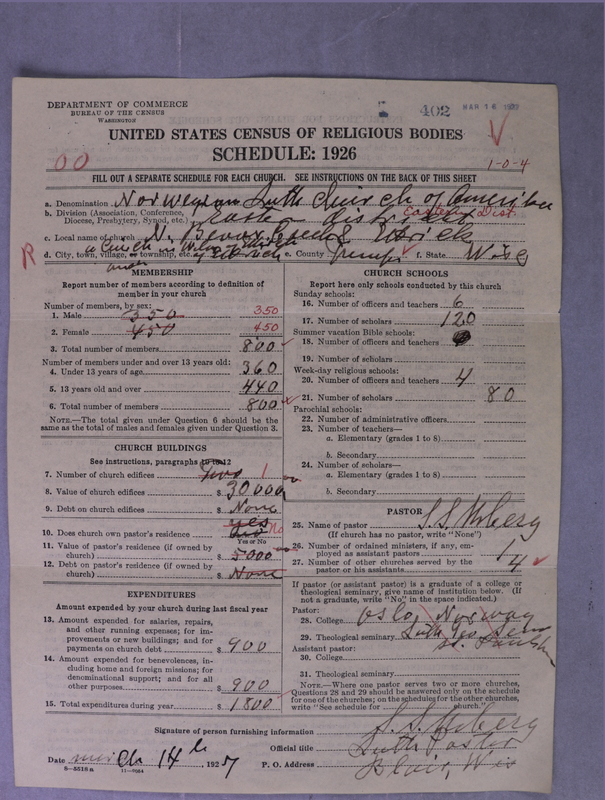 DEPARTMENT OF COMMERCE
BUREAU OF THE CENSUS
WASHINGTON
402
MAR 16 1927
UNITED STATES CENSUS OF RELIGIOUS BODIES
SCHEDULE: 1926
00
1-0-4
FILL OUT A SEPARATE SCHEDULE FOR EACH CHURCH. SEE INSTRUCTIONS ON THE BACK OF THIS SHEET
a. Denomination Norwegian Luth Church of America
b. Division (Association, Conference, Diocese, Presbytery, Synod, etc.) Eastern District Eastern Dist.
c. Local name of church N. Beaver Creek & Ettrick
d. City, town, village, or township, etc. e. County Tremp. f. State Wis
R
MEMBERSHIP
Report number of members according to definition of member in your church
Number of members, by sex:
1. Male 350 350
2. Female 450 450
3. Total number of members 800
Number of members under and over 13 years old:
4. Under 13 years of age 360
5. 13 years old and over 440
6. Total number of members 800
NOTE.—The total given under Question 6 should be the same as the total of males and females given under Question 3.
CHURCH BUILDINGS
See instructions, paragraphs 10 to 12
7. Number of church edifices Two 1
8. Value of church edifices $ 30000
9. Debt on church edifices $ None
10. Does church own pastor's residence yes No
Yes or No
11. Value of pastor's residence (if owned by church) $ 5000
12. Debt on pastor's residence (if owned by church) $ None
EXPENDITURES
Amount expended by your church during last fiscal year
13. Amount expended for salaries, repairs, and other running expenses; for improvements or new buildings; and for payments on church debt $ 900
14. Amount expended for benevolences, including home and foreign missions; for denominational support; and for all other purposes $ 900
15. Total expenditures during year $ 1800
CHURCH SCHOOLS
Report here only schools conducted by this church
Sunday schools:
16. Number of officers and teachers 6
17. Number of scholars 120
Summer vacation Bible schools:
18. Number of officers and teachers
19. Number of scholars
Week-day religious schools:
20. Number of officers and teachers 4
21. Number of scholars 80
Parochial schools:
22. Number of administrative officers
23. Number of teachers—
a. Elementary (grades 1 to 8)
b. Secondary
24. Number of scholars—
a. Elementary (grades 1 to 8)
b. Secondary
PASTOR
25. Name of pastor S. S. Urberg
(If church has no pastor, write "None")
26. Number of ordained ministers, if any, employed as assistant pastors
27. Number of other churches served by the pastor or his assistants 4
If pastor (or assistant pastor) is a graduate of a college or theological seminary, give name of institution below. (If not a graduate, write "No" in the space indicated.)
Pastor:
28. College Oslo, Norway
29. Theological seminary Luth Theo Sem St. Paul
Assistant pastor:
30. College
31. Theological seminary
NOTE.—Where one pastor serves two or more churches, Questions 28 and 29 should be answered only on the schedule for one of the churches; on the schedules for the other churches, write "See schedule for church."
Signature of person furnishing information S. S. Urberg
Official title Luth Pastor
Date March 14th, 1927
P. O. Address Blair, Wis
8—5518a 11—9064